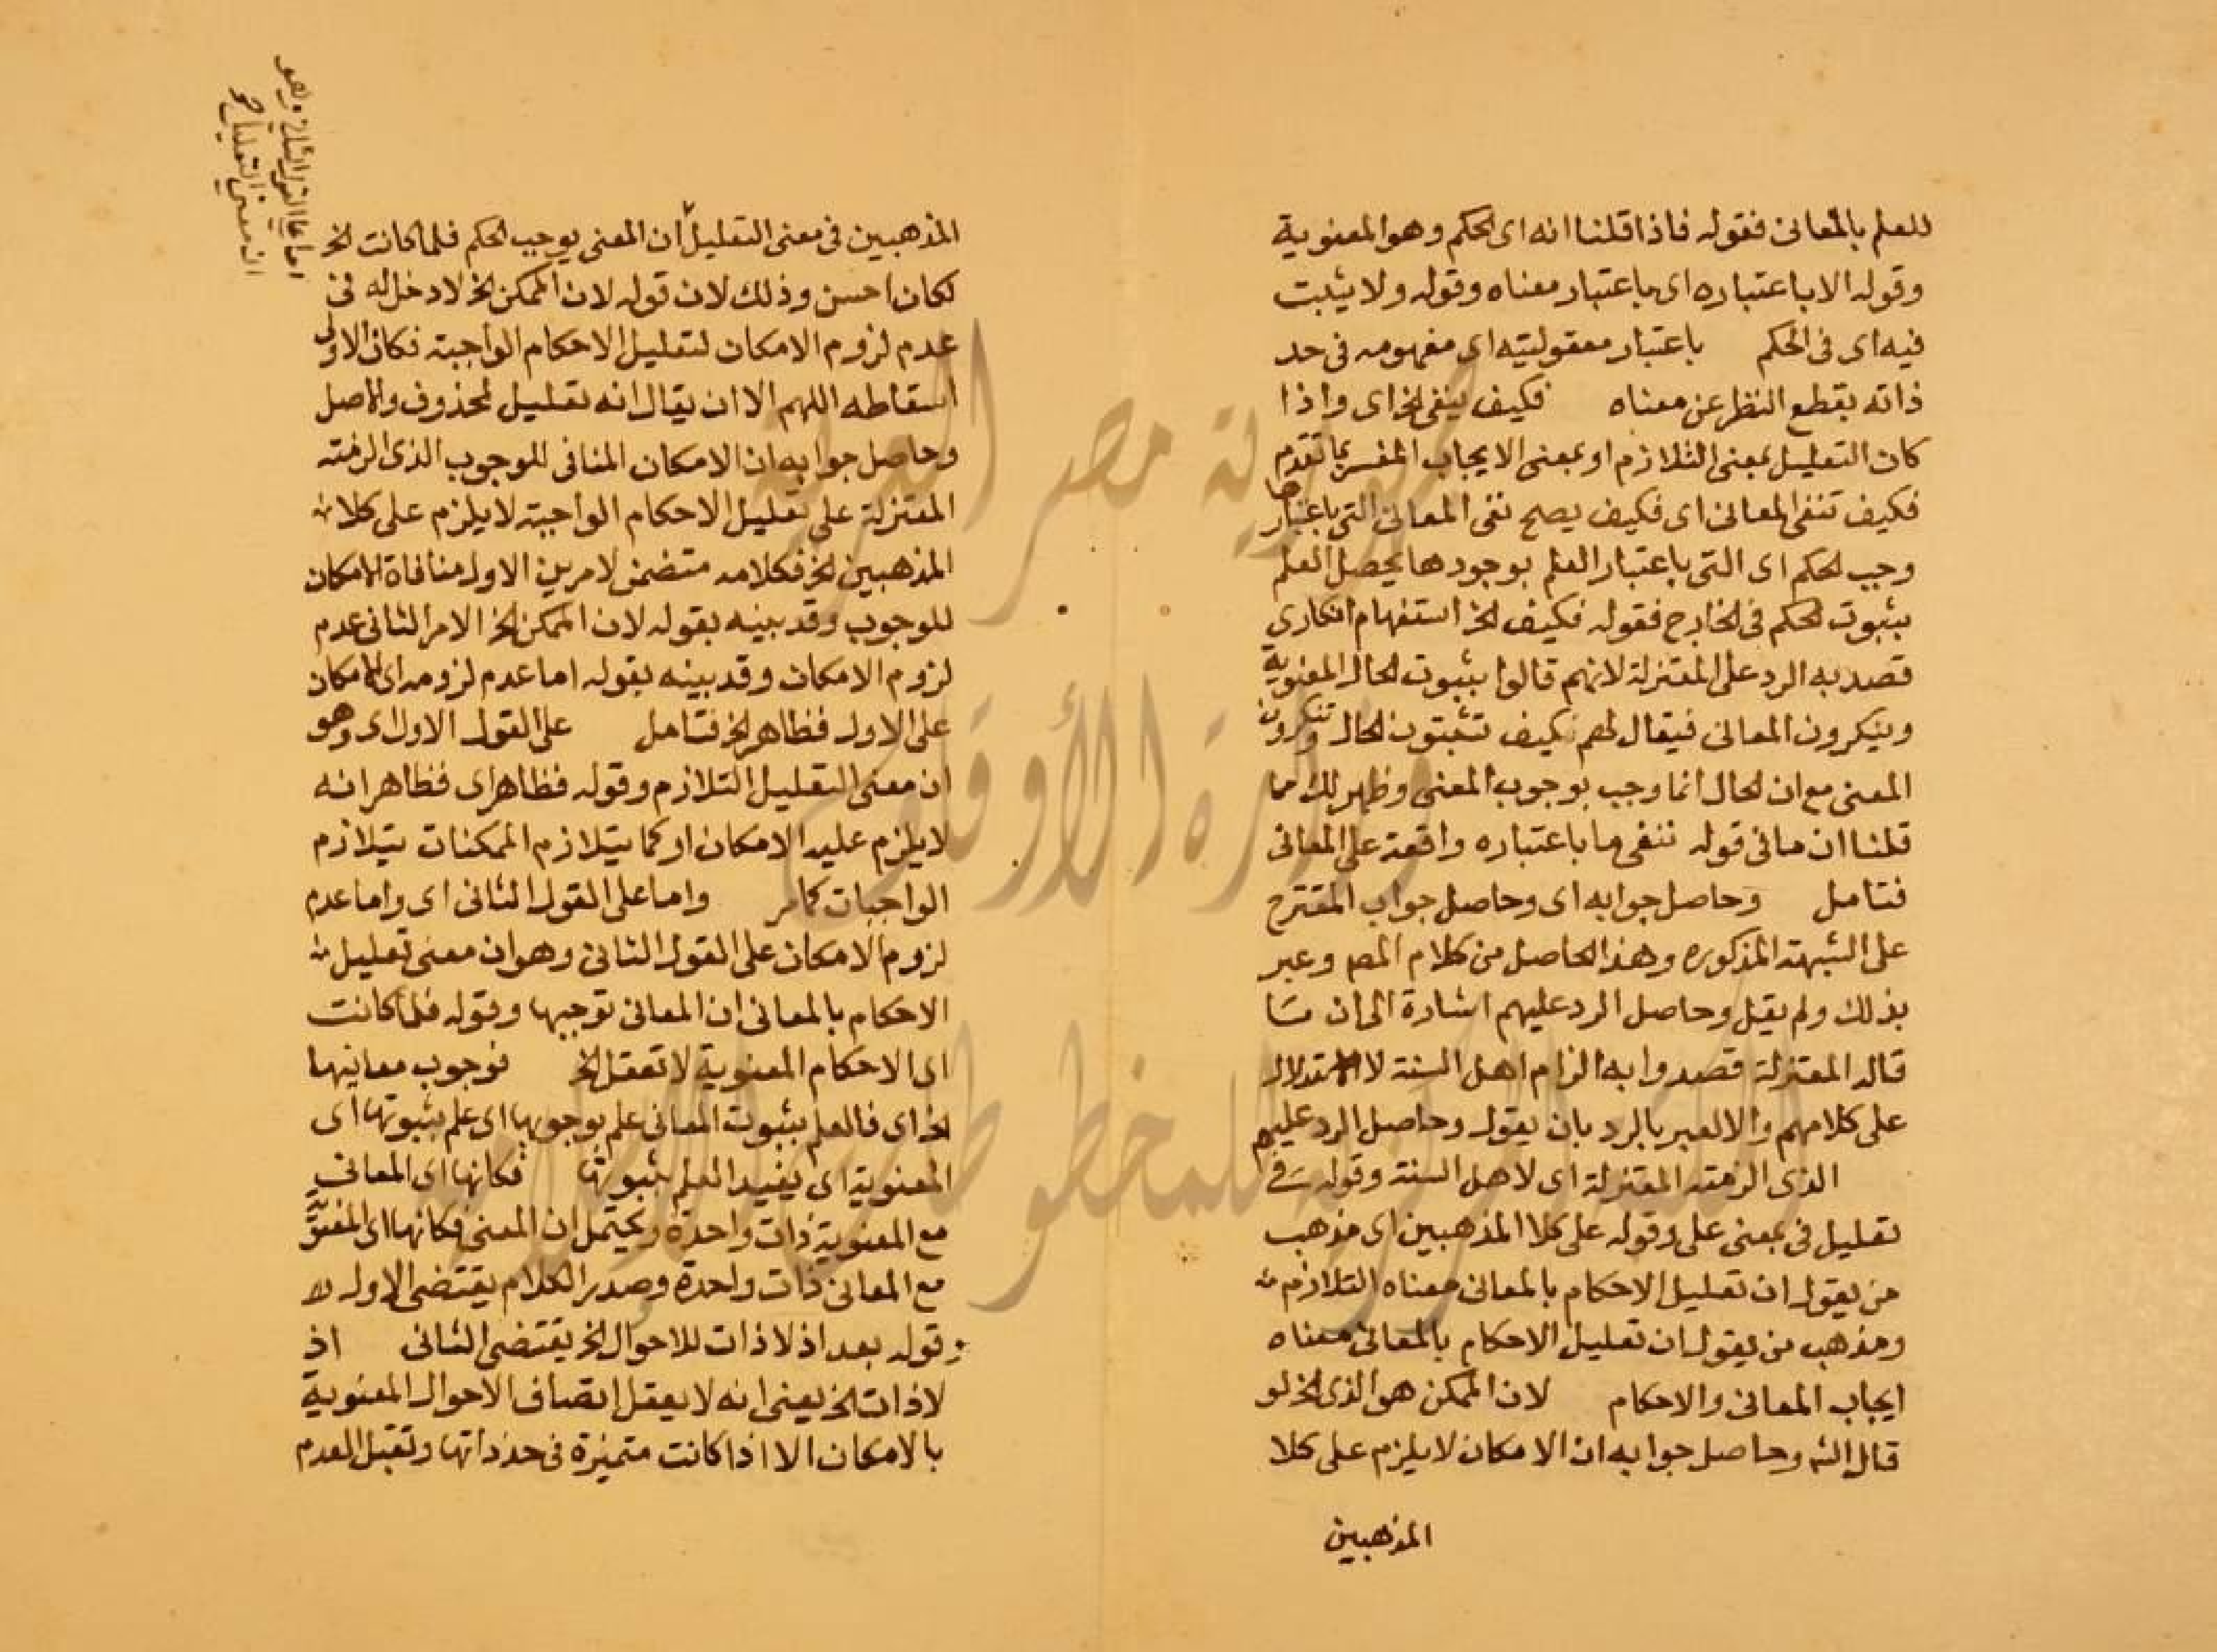 للعلم بالمعانى فقوله فاذا قلنا انه اى الحكم وهو المعنوية
وقوله الا باعتباره اى باعتبار معناه وقوله ولا يثبت
فيه اى فى الحكم باعتبار معقوليته اى مفهومه فى حد
ذاته بقطع النظر عن معناه فكيف ينفى الخ اى واذا
كان التعليل بمعنى التلازم او بمعنى الايجاب المفسر بما تقدم
فكيف تنفى المعانى اى فكيف يصح نفى المعانى التى باعتبارها
وجب الحكم اى التى باعتبار العلم بوجودها يحصل العلم
بثبوت الحكم فى الخارج فقوله فكيف الخ استفهام انكارى
قصد به الرد على المعتزلة لانهم قالوا بثبوت الحال المعنوية
وينكرون المعانى فيقال لهم كيف تثبتون الحال وتنكرون
المعنى مع ان الحال انما وجب بوجوب المعنى وظهر لك مما
قلنا ان ما فى قوله ننفى ما باعتباره واقعة على المعانى
فتامل وحاصل جوابه اى وحاصل جواب المقترح
على الشبهة المذكوره وهذا الحاصل من كلام المص وعبر
بذلك ولم يقل وحاصل الرد عليهم اشارة الى ان ما
قاله المعتزلة قصدوا به الزام اهل السنة لا الاستدلال
على كلامهم والا لعبر بالرد بان يقول وحاصل الرد عليهم
الذى الزمته المعتزلة اى لاهل السنة وقوله فى
تعليل فى بمعنى على وقوله على كلا المذهبين اى مذهب
من يقول ان تعليل الاحكام بالمعانى معناه التلازم
ومذهب من يقول ان تعليل الاحكام بالمعانى معناه
ايجاب المعانى والاحكام لان الممكن هو الذى الخ لو
قال الش وحاصل جوابه ان الامكان لا يلزم على كلا
المذهبين
المذهبين فى معنى التعليل ان المعنى يوجب الحكم فلما كانت الخ
لكان احسن وذلك لان قوله لان الممكن الخ لا دخل له فى
عدم لزوم الامكان لتعليل الاحكام الواجبة فكان الاولى
اسقاطه اللهم الا ان يقال انه تعليل لمحذوف والاصل
وحاصل جوابه ان الامكان المنافى للوجوب الذى الزمته
المعتزلة على تعليل الاحكام الواجبة لا يلزم على كلا
المذهبين الخ فكلامه متضمن لامرين الاول منافاة الامكان
للوجوب وقد بينه بقوله لان الممكن الخ الامر الثانى عدم
لزوم الامكان وقد بينه بقوله اما عدم لزومه اى الامكان
على الاول فظاهر الخ فتامل على القول الاول اى وهو
ان معنى التعليل التلازم وقوله فظاهر اى فظاهر انه
لا يلزم عليه الامكان اذ كما يتلازم الممكنات يتلازم
الواجبات كما مر واما على القول الثانى اى واما عدم
لزوم الامكان على القول الثانى وهو ان معنى تعليل
الاحكام بالمعانى ان المعانى توجبها وقوله فلما كانت
اى الاحكام المعنوية لا تعقل الخ فوجوب معانيها
الخ اى فالعلم بثبوت المعانى علم بوجوبها اى علم بثبوتها اى
المعنوية اى يفيد العلم بثبوتها فكانها اى المعانى
مع المعنوية ذات واحدة ويحتمل ان المعنى فكانها اى المعنوية
مع المعانى ذات واحدة وصدر الكلام يقتضى الاول
وقوله بعد اذ لا ذات للاحوال الخ يقتضى الثانى اذ
لا ذات الخ يعنى انه لا يعقل اتصاف الاحوال المعنوية
بالامكان الا اذا كانت متميزة فى حد ذاتها وتقبل العدم
اما على القول الثانى وهو
ان معنى التعليل
جمهورية مصر العربية
وزارة الأوقاف
المكتبة المركزية للمخطوطات الإسلامية